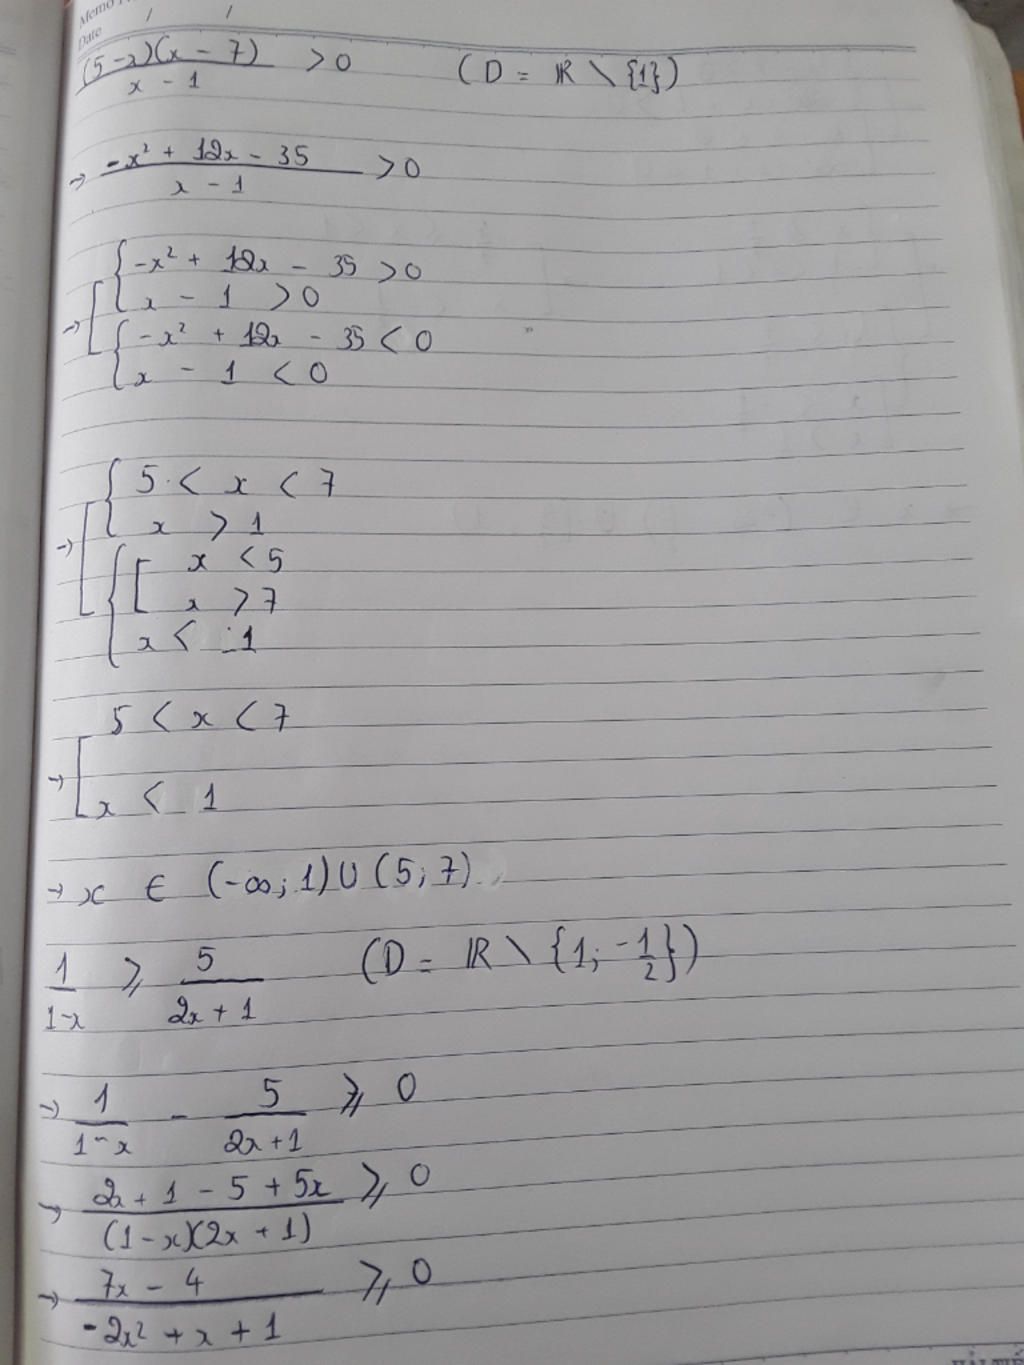 Memo
Date / /
(5-x)(x-7)/(x-1) > 0 (D = ℝ \ {1})
→ (-x² + 12x - 35)/(x - 1) > 0
-x² + 12x - 35 > 0
→ x - 1 > 0
-x² + 12x - 35 < 0
x - 1 < 0
5 < x < 7
→ x > 1
x < 5
x > 7
x < 1
5 < x < 7
→ x < 1
→ x ∈ (-∞; 1) ∪ (5; 7)
1/(1-x) ⩾ 5/(2x+1) (D = ℝ \ {1; -1/2})
→ 1/(1-x) - 5/(2x+1) ⩾ 0
→ (2x + 1 - 5 + 5x)/((1-x)(2x+1)) ⩾ 0
→ (7x - 4)/(-2x² + x + 1) ⩾ 0